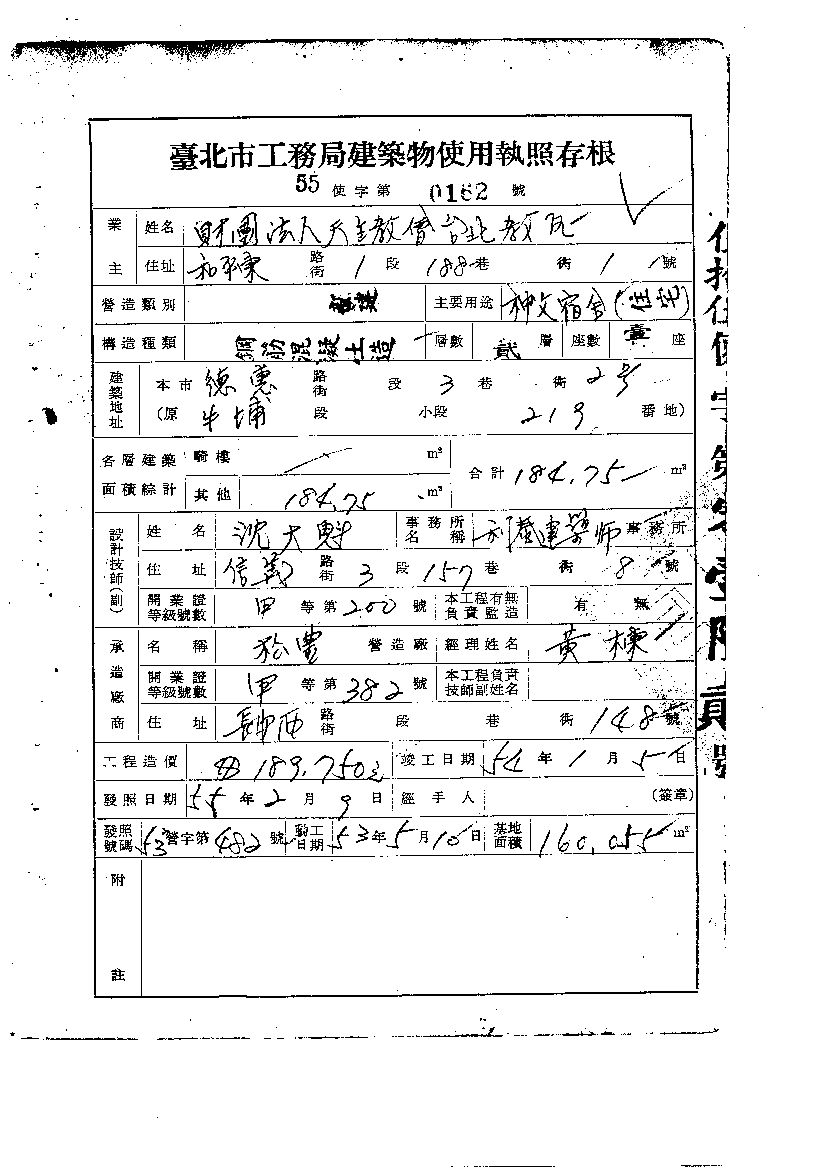 臺北市工務局建築物使用執照存根
55 使字第 0162 號
業主 姓名 財團法人天主教會台北教區
住址 和平東 路街 1 段 188 巷 街 1 號
營造類別 新建 主要用途 神父宿舍(住宅)
構造種類 鋼筋混凝土造 層數 貳 層 座數 壹 座
建築地址 本市 德惠 路街 段 3 巷 街 2号
(原 牛埔 段 小段 219 番地)
各層建築面積綜計 騎樓 m² 合計 184.75 m²
其他 184.75 m²
設計技師(副) 姓名 沈大魁 事務所名稱 利眾建築師 事務所
住址 信義 路街 3 段 157 巷 街 8 號
開業證等級號數 甲 等第 200 號 本工程有無負責監造 有 無
承造廠商 名稱 松豐 營造廠 經理姓名 黃棟
開業證等級號數 甲 等第 382 號 本工程負責技師副姓名
住址 長安西 路街 段 巷 街 148 號
工程造價 189,750元 竣工日期 54 年 1 月 5 日
發照日期 55 年 2 月 9 日 經手人 (簽章)
發照號碼 53 營字第 482 號 動工日期 53 年 5 月 10 日 基地面積 160.055 m²
附註
伍拾伍使字第零壹陸貳號